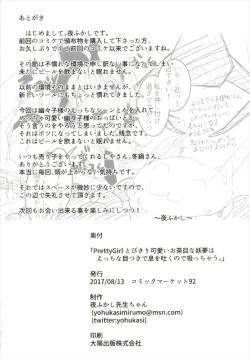 あとがき
はじめまして、夜ふかしです。
前回のコミケで頒布物を購入して下さった方、
お久しぶりです。前回のコミケ以来でございますね。
その節は不慣れな環境で申し訳ない事になってて
未だにビールを飲まないと眠れません。
以前の環境そのままとはいきませんが、
新しい環境でもビールを飲まないと眠れません。
今回は幽々子様のえっちなシーンとなを入れて
めっちゃ可愛い幽々子様のおっぱいとか
そう言うのをやろうと思ってたんですが、
それはボツになってしまいました。残念です。
いつも売り子をやってくれるしちゃさん、冬鍋さん、
ありがとうございます。
本当に毎回、頭が上がらない気持ちです。
それではスペースが微妙に少ないですので、
この辺で失礼致します。
次回もお会い出来る事を楽しみにしつつ!
~夜ふかし~
奥付
「PrettyGirl とびきり可愛いお茶目な妖夢は
えっちな目つきで息を吐くので吸っちゃう。」
発行
2017/08/13　コミックマーケット92
制作
夜ふかし先生ちゃん
(yohukasimirumo@msn.com)
(twitter:yohukasi)
印刷
大陽出版株式会社